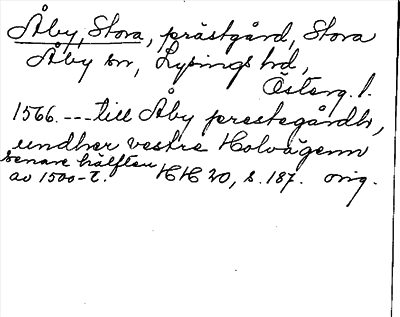 Åby, Stora, prästgård, Stora
Åby sn, Lysings hd,
Österg. l.
1566. --- till Åby prestegårdh,
undher vestre Holvägenn
senare hälften
av 1500-t. HH 20, s. 187. orig.